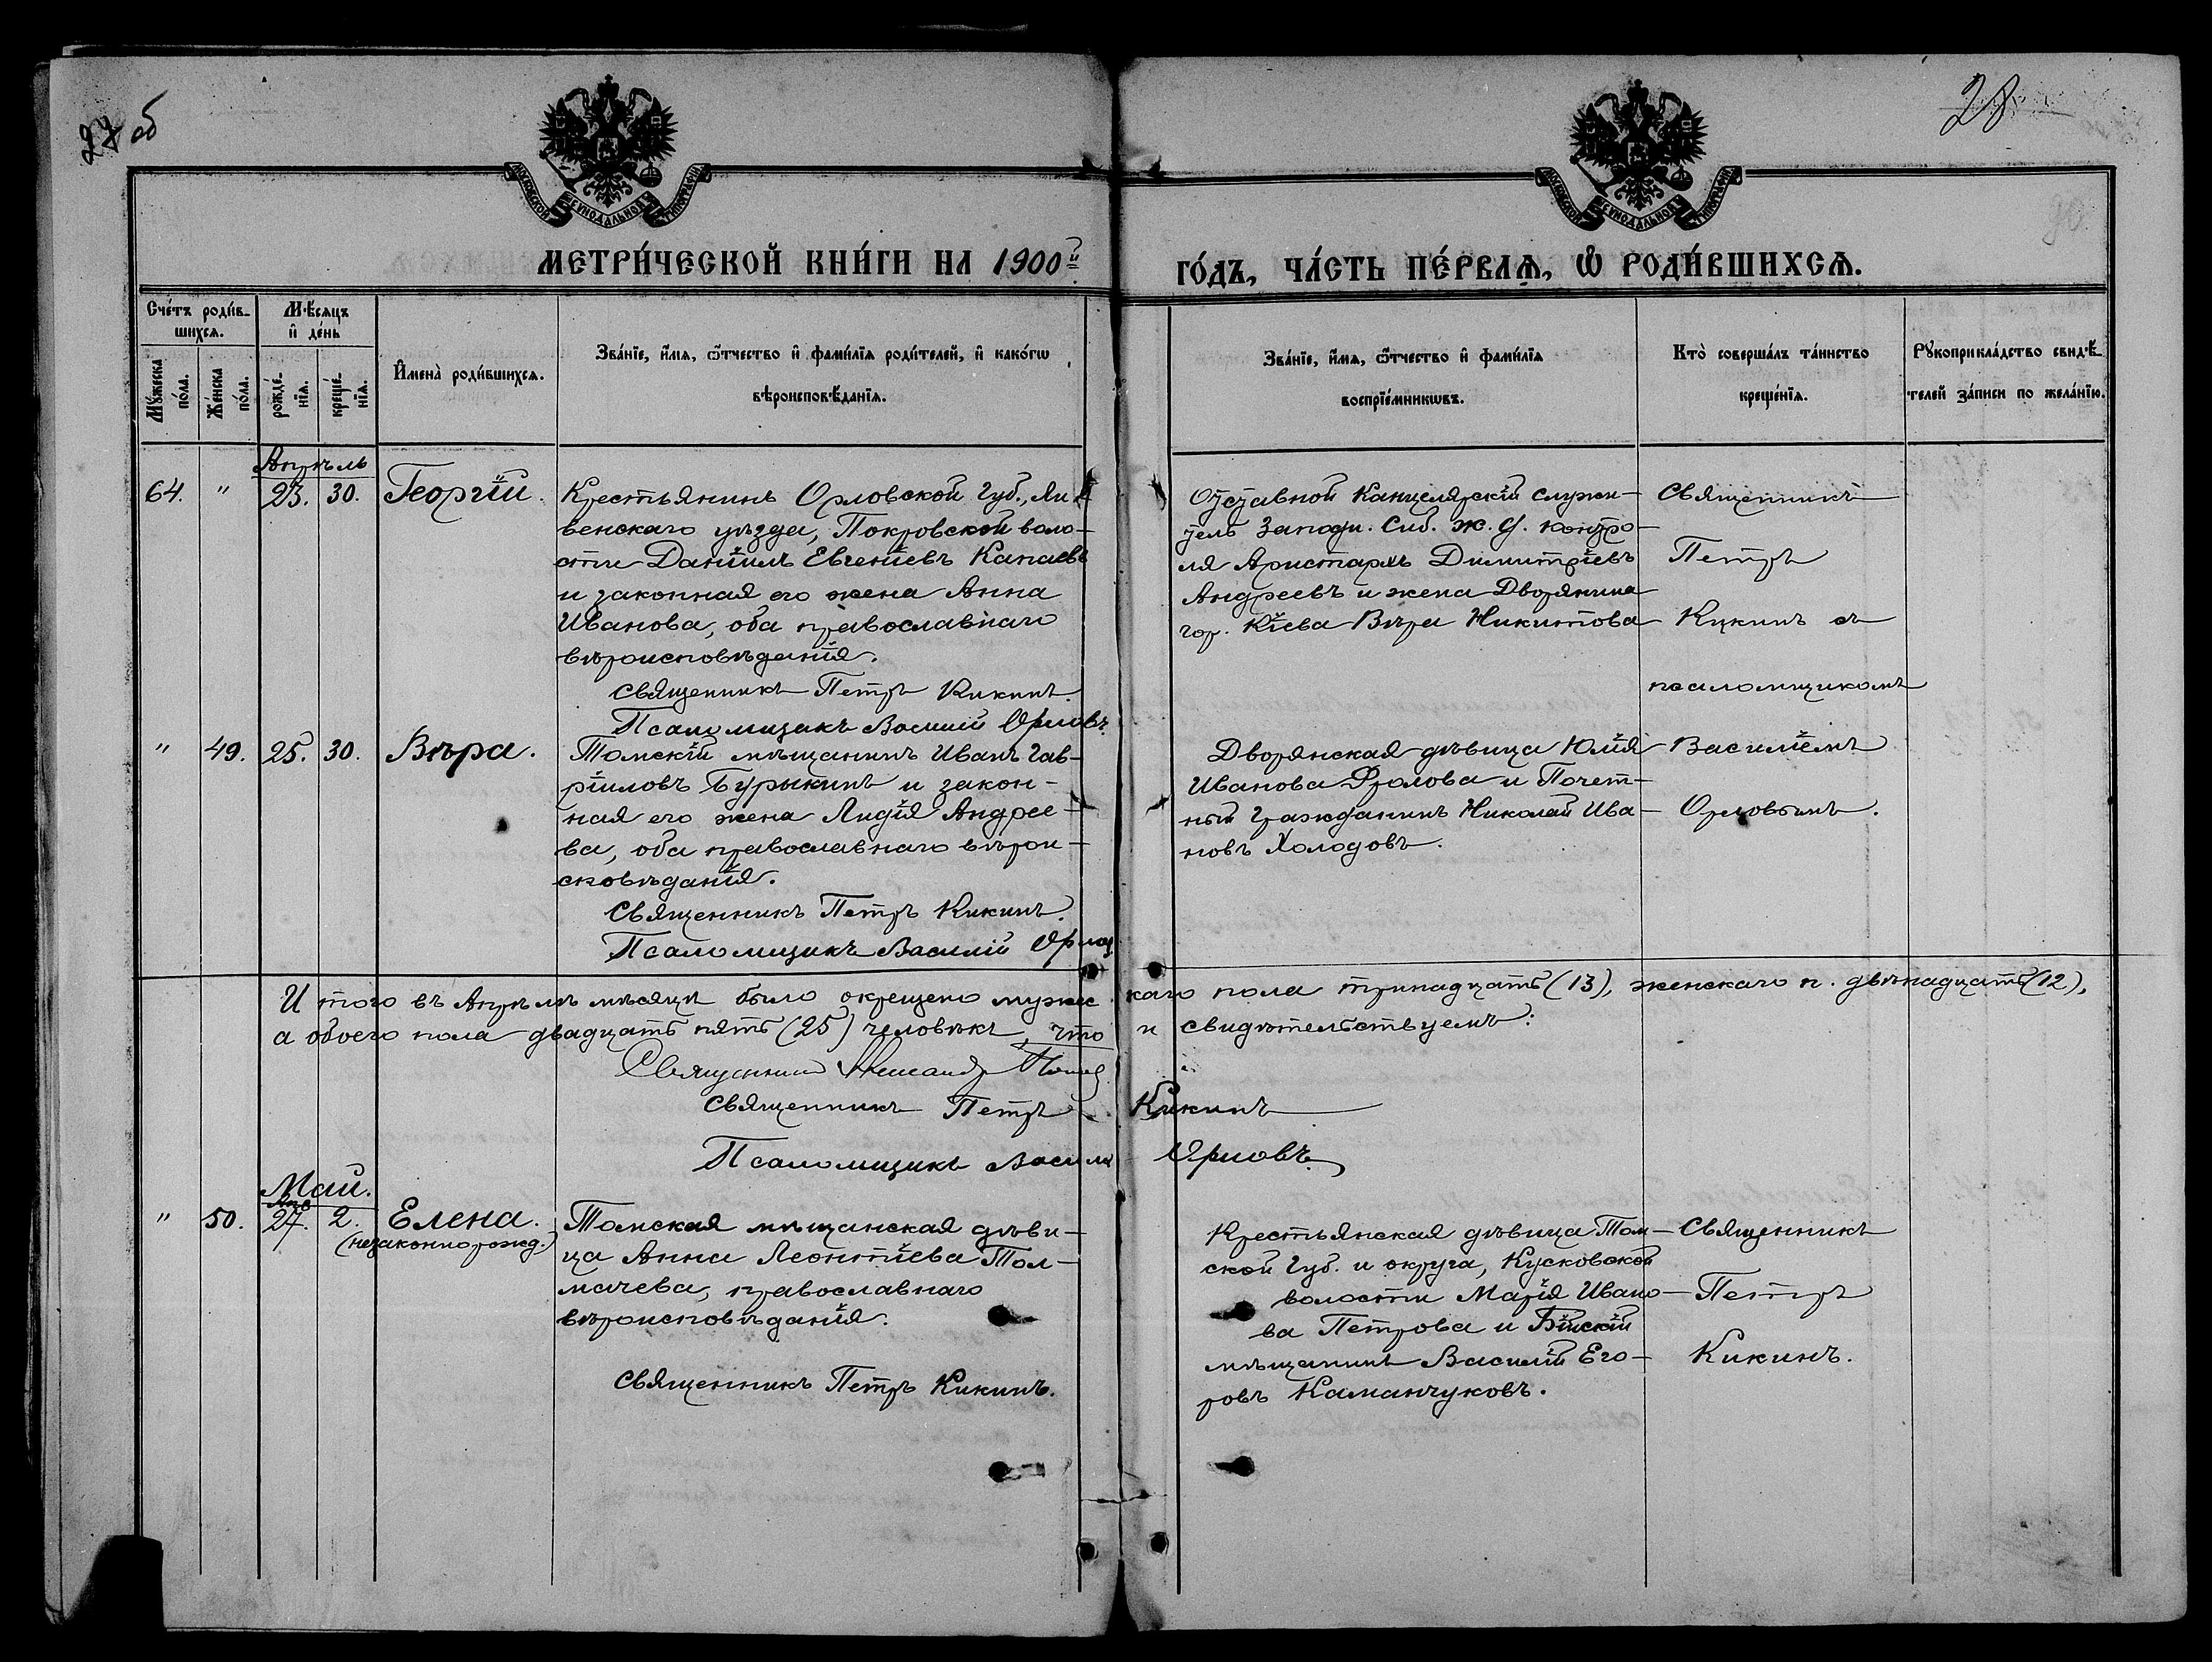 27 об
28
МОСКОВСКОЙ СѴНОДАЛЬНОЙ ТИПОГРАФІИ
МОСКОВСКОЙ СѴНОДАЛЬНОЙ ТИПОГРАФІИ
МЕТРИ́ЧЕСКОЙ КНИ́ГИ НА 1900й
ГО́ДЪ, ЧА́СТЬ ПЕ́РВАѦ, Ѽ РОДИ́ВШИХСѦ.
Сче́тъ роди́в-
шихсѧ.
Мꙋ́жеска по́ла.
Же́нска по́ла.
Мѣ́сѧцъ
и҆ де́нь
рожде́-
нїѧ.
креще́-
нїѧ.
И҆мена̀ роди́вшихсѧ.
Зва́нїе, и҆́мѧ, ѻ҆́тчество и҆ фами́лїѧ роди́телей, и҆ како́гѡ
вѣроисповѣ́данїѧ.
Зва́нїе, и҆́мѧ, ѻ҆́тчество и҆ фами́лїѧ
воспрїе́мникѡвъ.
Кто̀ соверша́лъ та́инство
креще́нїѧ.
Рꙋкоприкла́дство свидѣ́-
телей за́писи по жела́нїю.
Апрѣль
64. " 23. 30. Георгій.
Крестьянинъ Орловской Губ., Ли-
венскаго уѣзда, Покровской воло-
сти Даніилъ Евгеніевъ Капаевъ
и законная его жена Анна
Иванова, оба православнаго
вѣроисповѣданія.
Священникъ Петръ Кикинъ.
Псаломщикъ Василій Орловъ.
Отставной Канцелярскій служи-
тель Западн. Сиб. ж. д. контро-
ля Аристархъ Димитріевъ
Андреевъ и жена Дворянина
гор. Кіева Вѣра Никитова
Священникъ
Петръ
Кикинъ съ
псаломщикомъ
Василіемъ
Орловымъ.
" 49. 25. 30. Вѣра.
Томскій мѣщанинъ Иванъ Гав-
ріиловъ Бурыкинъ и закон-
ная его жена Лидія Андрее-
ва, оба православнаго вѣрои-
сповѣданія.
Священникъ Петръ Кикинъ.
Псаломщикъ Василій Орлов
Дворянская дѣвица Юлія
Иванова Фролова и Почет-
ный Гражданинъ Николай Ива-
новъ Холодовъ.
Итого въ Апрѣлѣ мѣсяцѣ было окрещено мужескаго пола тринадцать (13), женскаго п. двѣнадцать (12),
а обоего пола двадцать пять (25) человѣкъ, что и свидѣтельствуемъ:
Священникъ Александръ
Священникъ Петръ Кикинъ
Псаломщикъ Василій Орловъ.
Май.
Апр
" 50. 27. 2. Елена.
(незаконнорожд.)
Томская мѣщанская дѣви-
ца Анна Леонтіева Тол-
мачева, православнаго
вѣроисповѣданія.
Священникъ Петръ Кикинъ.
Крестьянская дѣвица Том-
ской Губ. и округа, Кусковской
волости Марія Ивано-
ва Петрова и Бійскій
мѣщанинъ Василій Его-
ровъ Каманчуковъ.
Священникъ
Петръ
Кикинъ.